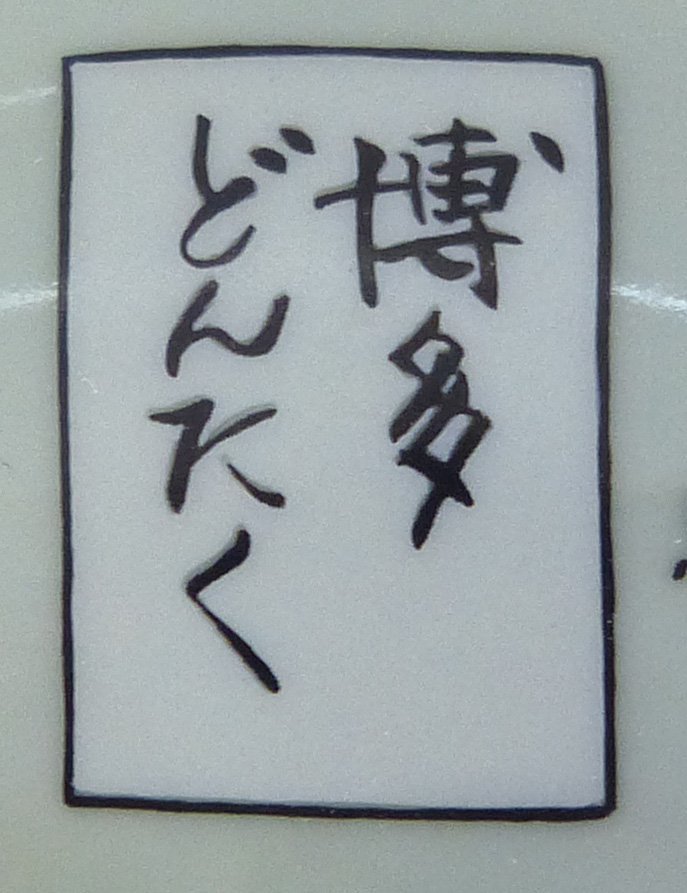 博多
どんたく